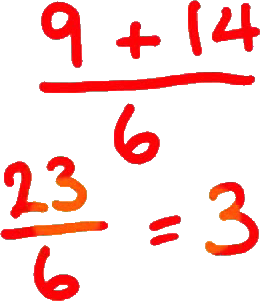 9 + 14
6
23
6 = 3